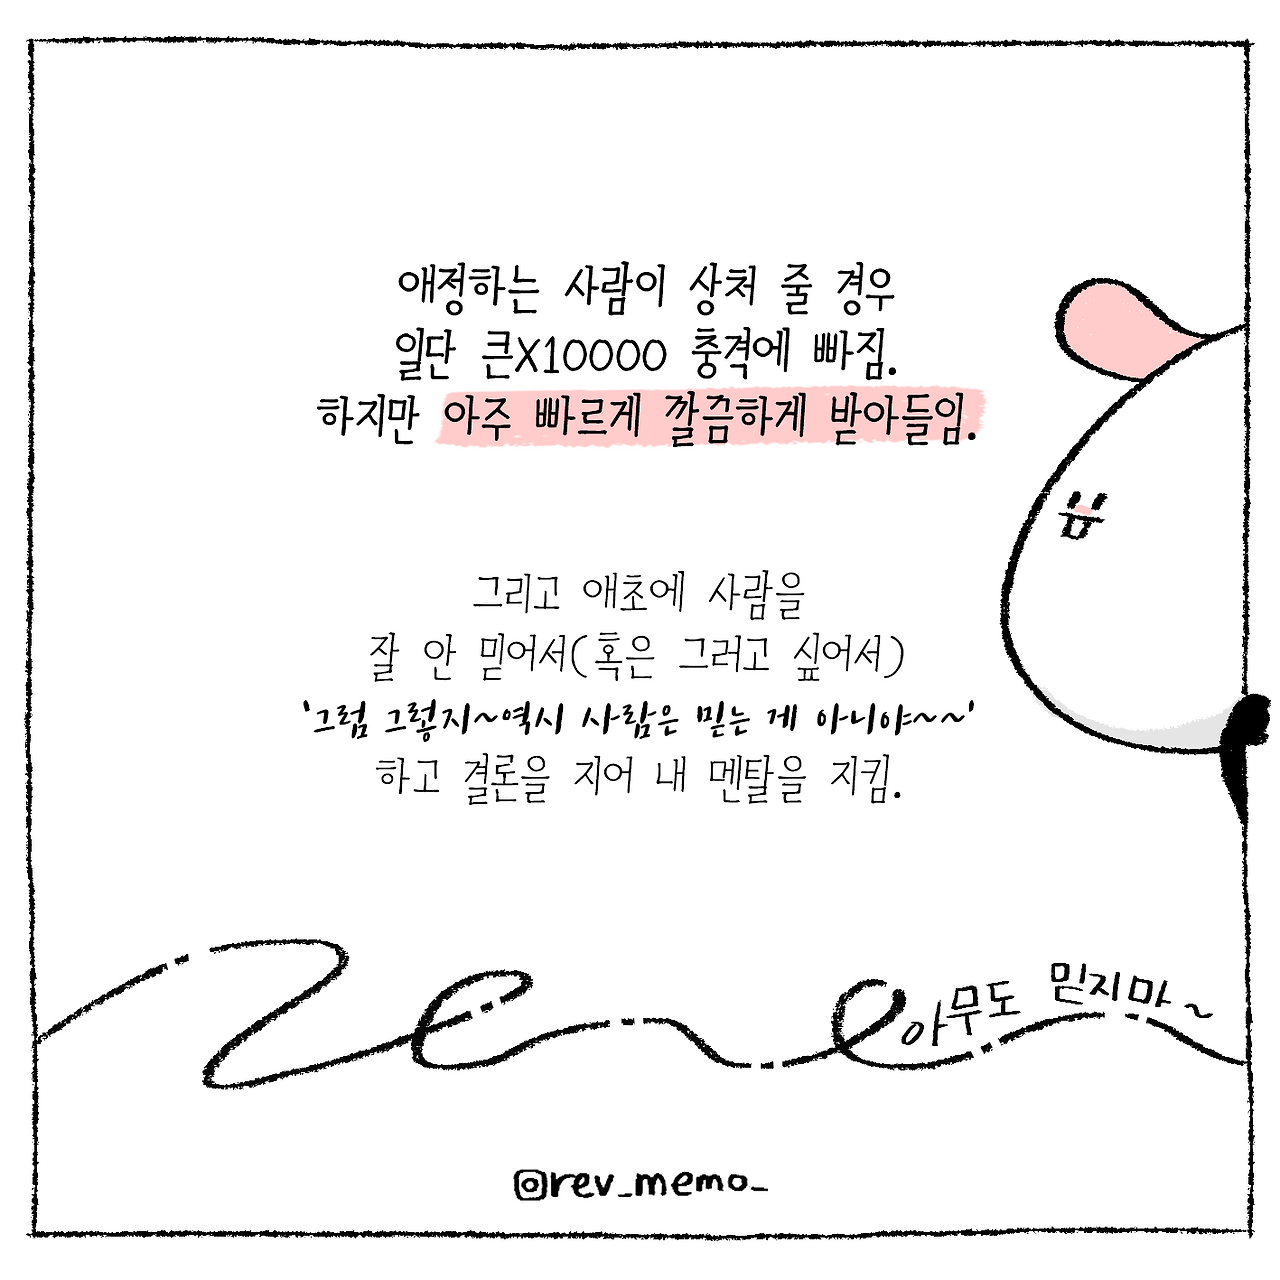 애정하는 사람이 상처 줄 경우
일단 큰X10000 충격에 빠짐.
하지만 아주 빠르게 깔끔하게 받아들임.
그리고 애초에 사람을
잘 안 믿어서(혹은 그러고 싶어서)
'그럼 그렇지~역시 사람은 믿는 게 아니야~~'
하고 결론을 지어 내 멘탈을 지킴.
아무도 믿지마~
@rev_memo_